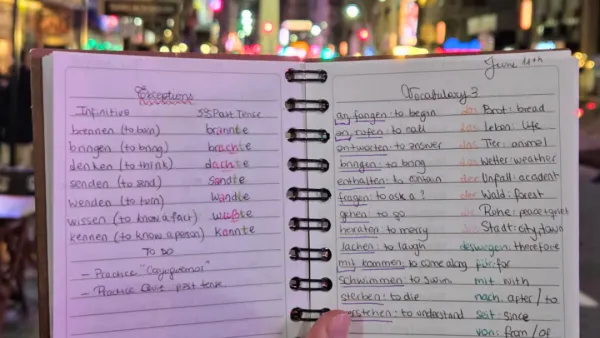 Exceptions
Infinitive Past Tense
brennen (to burn) brannte
bringen (to bring) brachte
denken (to think) dachte
senden (to send) sandte
wenden (to turn) wandte
wissen (to know a fact) wußte
kennen (to know a person) kannte
TO DO
- Practice "Conjuguemos"
- Practice past tense
June 11th
Vocabulary 3
an fangen: to begin das Brot: bread
an rufen: to call das Leben: life
antworten: to answer das Tier: animal
bringen: to bring das Wetter: weather
enthalten: to contain der Unfall: accident
fragen: to ask a ? der Wald: forest
gehen: to go die Ruhe: peace + quiet
heiraten: to marry die Stadt: city, town
lachen: to laugh deswegen: therefore
mit kommen: to come along für: for
schwimmen: to swim mit: with
sterben: to die nach: after / to
verstehen: to understand seit: since
von: from / of